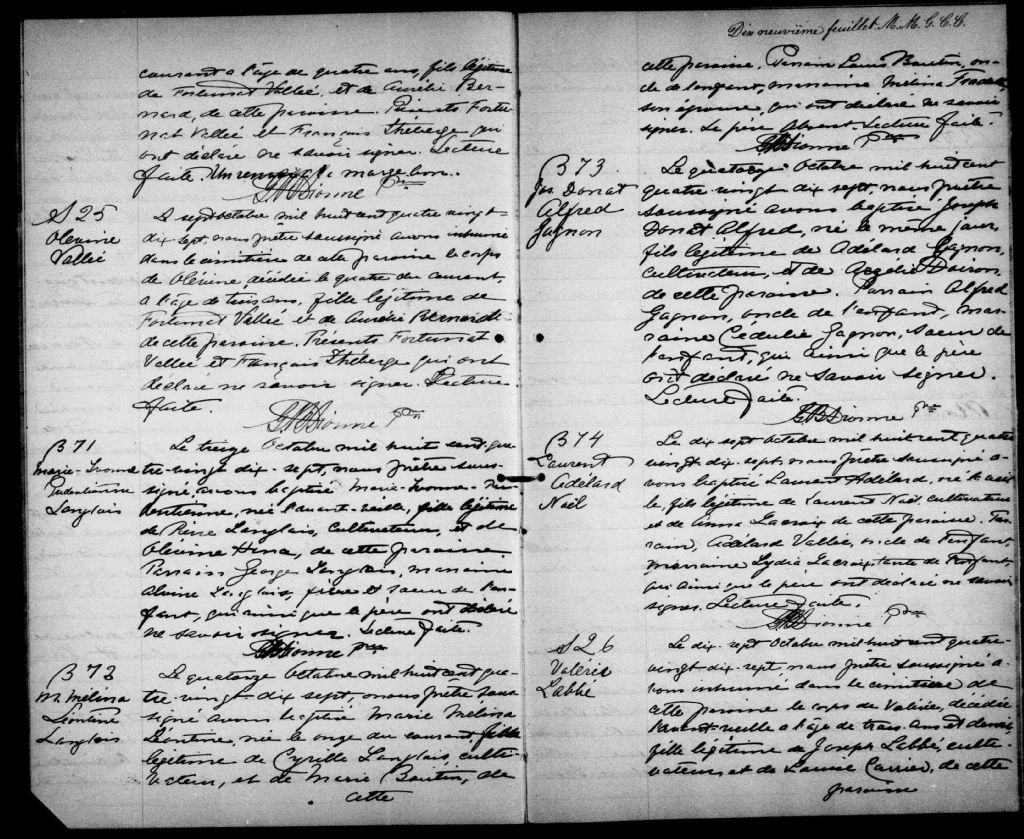 courant a l'âge de quatre ans, fils légitime
de Fortunat Vallée, et de Aurélie Ber-
nard, de cette paroisse. Présents Fortu-
nat Vallée et François Théberge qui
ont déclaré ne savoir signer. Lecture
faite. Un renvoi en marge bon.
Dionne Ptre
S 25
Olévine
Vallée
L sept octobre mil huit cent quatre vingt-
dix sept, nous prêtre soussigné avons inhumé
dans le cimetière de cette paroisse le corps
de Olévine décédée le quatre du courant,
a l'âge de trois ans, fille légitime de
Fortunat Vallée et de Aurélie Bernard
de cette paroisse. Présents Fortunat
Vallée et François Théberge qui ont
déclaré ne savoir signer. Lecture
faite.
Dionne Ptre
B 71
Marie-Ivonne
Langlois
Le treize Octobre mil huit cent qua-
tre-vingt dix-sept, nous prêtre sous-
signé, avons baptisé Marie-Ivonne-
née l'avant-veille, fille légitime
de Pierre Langlois, Cultivateur, et de
Olévine de cette paroisse.
Parrain George Langlois, marraine
Alvine Langlois, frère et soeur de l'en-
fant, qui ainsi que le père ont déclaré
ne savoir signer. Lecture faite.
Dionne Ptre
B 72
M. Melina
Léontine
Langlois
Le quatorze Octobre mil huit cent qua-
tre-vingt-dix sept, nous prêtre sous
signé avons baptisé Marie Melina
Léontine, née le onze du courant fille
légitime de Cyrille Langlois, culti-
vateur, et de Marie Boutin, de
cette
Dix neuvième feuillet. M. M. G. C. C.
cette paroisse. Parrain Louis Boutin, on-
cle de l'enfant, marraine Mélina
son épouse, qui ont déclaré ne savoir
signer. Le père absent. Lecture faite.
Dionne Ptre
B 73.
Jos. Donat
Alfred
Gagnon
Le quatorze Octobre mil huit cent
quatre vingt dix sept, nous prêtre
soussigné avons baptisé Joseph
Donat Alfred, né le même jour,
fils légitime de Adélard Gagnon,
cultivateur, et de Doiron,
de cette paroisse. Parrain Alfred
Gagnon, oncle de l'enfant, mar-
raine Cédulie Gagnon, soeur de
l'enfant, qui ainsi que le père
ont déclaré ne savoir signer.
Lecture faite.
Dionne Ptre
B 74
Laurent
Adélard
Noël
Le dix sept octobre mil huit cent quatre
vingt dix-sept nous prêtre soussigné a-
vons baptisé Laurent Adélard, né
fils légitime de Laurent Noël cultivateur
et de Anna Lacroix de cette paroisse. Par-
rain, Adélard Vallée, oncle de l'enfant,
marraine Lydia Lacroix tante de l'enfant,
qui ainsi que le père ont déclaré ne savoir
signer. Lecture faite.
Dionne Ptre
S 26
Valérie
Labbé
Le dix-sept Octobre mil huit cent quatre-
vingt dix-sept, nous prêtre soussigné a-
vons inhumé dans le cimetière de
cette paroisse le corps de Valérie, décédée
l'avant-veille a l'âge de trois ans et demi,
fille légitime de Joseph Labbé, culti-
vateur, et de Louise Carrier, de cette
paroisse